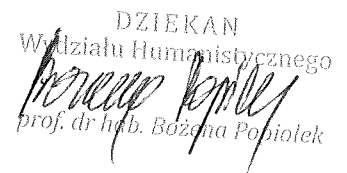 DZIEKAN
Wydziału Humanistycznego
prof. dr hab. Bożena Popiołek